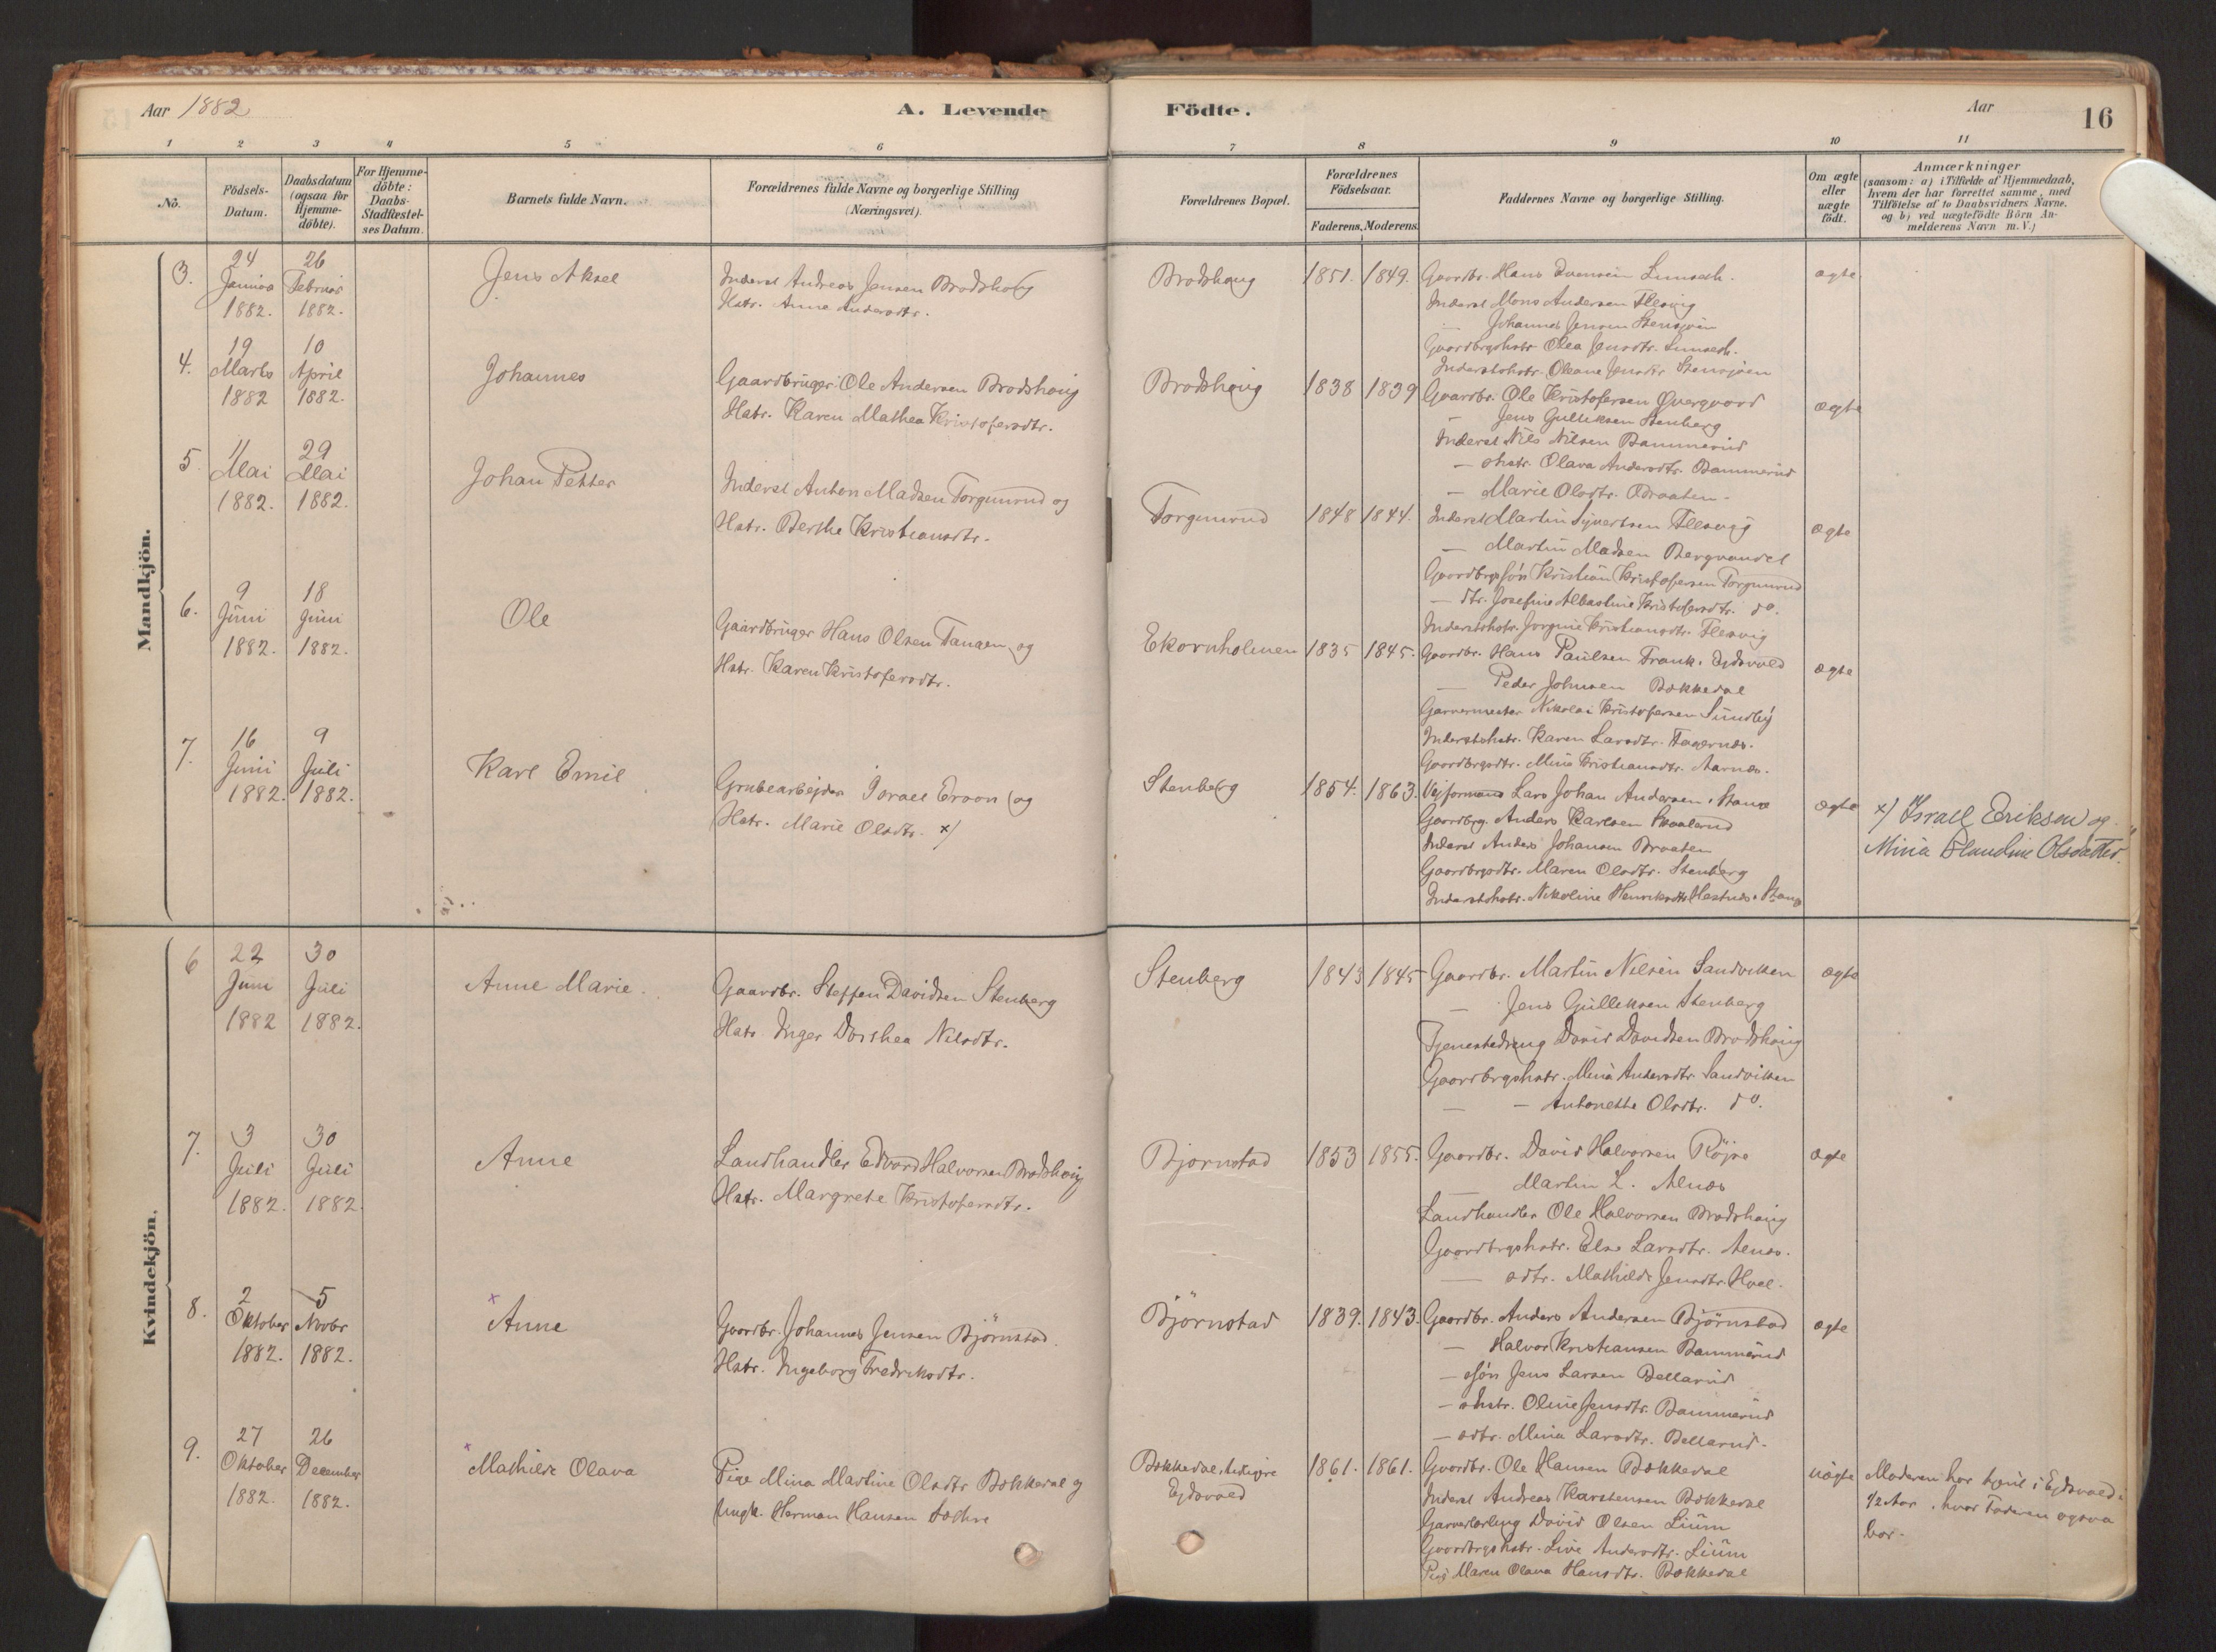 Aar 1882
A. Levende
Födte.
Aar
16
1 2 3 4 5 6 7 8 9 10 11
No.
Födsels-Datum.
Daabsdatum (ogsaa for Hjemme-döbte).
For Hjemme-döbte: Daabs-Stadfæstel-ses Datum.
Barnets fulde Navn.
Forældrenes fulde Navne og borgerlige Stilling (Næringsvei).
Forældrenes Bopæl.
Forældrenes Födselsaar.
Faderens. Moderens.
Faddernes Navne og borgerlige Stilling.
Om ægte eller uægte födt.
Anmærkninger
(saasom: a) i Tilfælde af Hjemmedaab,
hvem der har forrettet samme, med
Tilföielse af to Daabsvidners Navne.
og b) ved uægtefödte Börn An-
melderens Navn m. V.)
Mandkjön.
3.
24
Januar
1882.
26
Februar
1882.
Jens Aksel
Inderst Andreas Jensen Brodshoug
Hstr. Anne Andersdtr.
Brodshoug
1851. 1849.
Gaardbr. Hans
Inderst Mons Andersen Flesvig
— Johannes Jensen Stensjøen
Gaardbrgshstr. Olea Jensdtr.
Inderstshstr. Oleane Jensdtr. Stensjøen
ægte
4.
19
Marts
1882
10
April
1882.
Johannes
Gaardbruger Ole Andersen Brodshoug
Hstr. Karen Mathea Kristofersdtr.
Brodshoug
1838 1839
Gaardbr. Ole Kristofersen Øvergaard
— Jens Gulliksen Stenberg
Inderst Nils Nilsen Bammerud
— shstr. Olava Andersdtr. Bammerud
— Marie Olsdtr. Braaten.
ægte
5.
11
Mai
1882.
29
Mai
1882.
Johan Petter
Inderst Anton Madsen Torgunrud og
Hstr. Berthe Kristiansdtr.
Torgunrud
1848 1844.
Inderst Martin Syvertsen Flesvig
— Martin Madsen Bergvandet
Gaardbrgssøn Kristian Kristofersen Torgunrud
— dtr. Josefine Albertine Kristofersdtr. do.
Inderstshstr. Jorgine Kristiansdtr. Flesvig
ægte
6.
9
Juni
1882.
18
Juni
1882.
Ole
Gaardbruger Hans Olsen Tangen og
Hstr. Karen Kristofersdtr.
Ekornholmen
1835 1845.
Gaardbr. Hans Paulsen Frank, Ejdsvold
— Peder Johnsen Bækkedal
Garvermester Nikolai Kristofersen Sundby
Inderstshstr. Karen Larsdtr. Fagernæs.
Gaardbrgsdtr. Mina Kristiansdtr. Aarnæs.
ægte
7.
16
Juni
1882.
9
Juli
1882.
Karl Emil
Grubearbejder Israel Erson og
Hstr. Marie Olsdtr. x)
Stenberg
1854. 1863.
Vejformand Lars Johan Andersen, Stange
Gaardbrg. Anders Karlsen
Inderst Anders Johansen Braaten
Gaardbrgsdtr. Maren Olsdtr. Stenberg
Inderstshstr. Nikoline Henriksdtr. Hestnæs, Stange
ægte
x) Israel Eriksen og
Mina Blandine Olsdatter.
Kvindekjön.
6
22
Juni
1882
30
Juli
1882.
Anne Marie.
Gaardbr. Steffen Davidsen Stenberg
Hstr. Inger Dorthea Nilsdtr.
Stenberg
1843 1845
Gaardbr. Martin Nilsen Sandviken
— Jens Gulliksen Stenberg
Tjenestedreng David Davidsen Brodshoug
Gaardbrgshstr. Mina Andersdtr. Sandviken
— — Antonette Olsdtr. do.
ægte
7.
3
Juli
1882.
30
Juli
1882.
Anne
Landhandler Edvard Halvorsen Brodshoug
Hstr. Margrete Kristofersdtr.
Bjørnstad
1853 1855.
Gaardbr. David Halvorsen Röjse
— Martin L. Alnæs
Landhandler Ole Halvorsen Brodshoug
Gaardbrgshstr. Else Larsdtr. Alnæs.
— sdtr. Mathilde Jensdtr. Hoel.
ægte
8.
2
Oktober
1882.
5
Novbr
1882.
x
Anne
Gaardbr. Johannes Jensen Björnstad
Hstr. Ingeborg Fredriksdtr.
Björnstad
1839. 1843.
Gaardbr. Anders Andersen Björnstad
— Halvor Kristiansen Bammerud
— ssøn Jens Larsen Bellarud
— shstr. Oline Jensdtr. Bammerud
— sdtr. Mina Larsdtr. Bellarud.
ægte
9.
27
Oktober
1882.
26
December
1882.
x
Mathilde Olava
Pige Mina Martine Olsdtr. Bækkedal og
Ungk. Herman Hansen
Bækkedal,
Ejdsvold
1861. 1861.
Gaardbr. Ole Hansen Bækkedal
Inderst Andreas Karstensen Bækkedal
Garverlærling David Olsen Lium
Gaardbrgshstr. Live Andersdtr. Lium
Pige Maren Olava Hansdtr. Bækkedal
uægte
Moderen har tjent i Ejdsvold i
1/2 Aar, hvor Faderen ogsaa
bor.